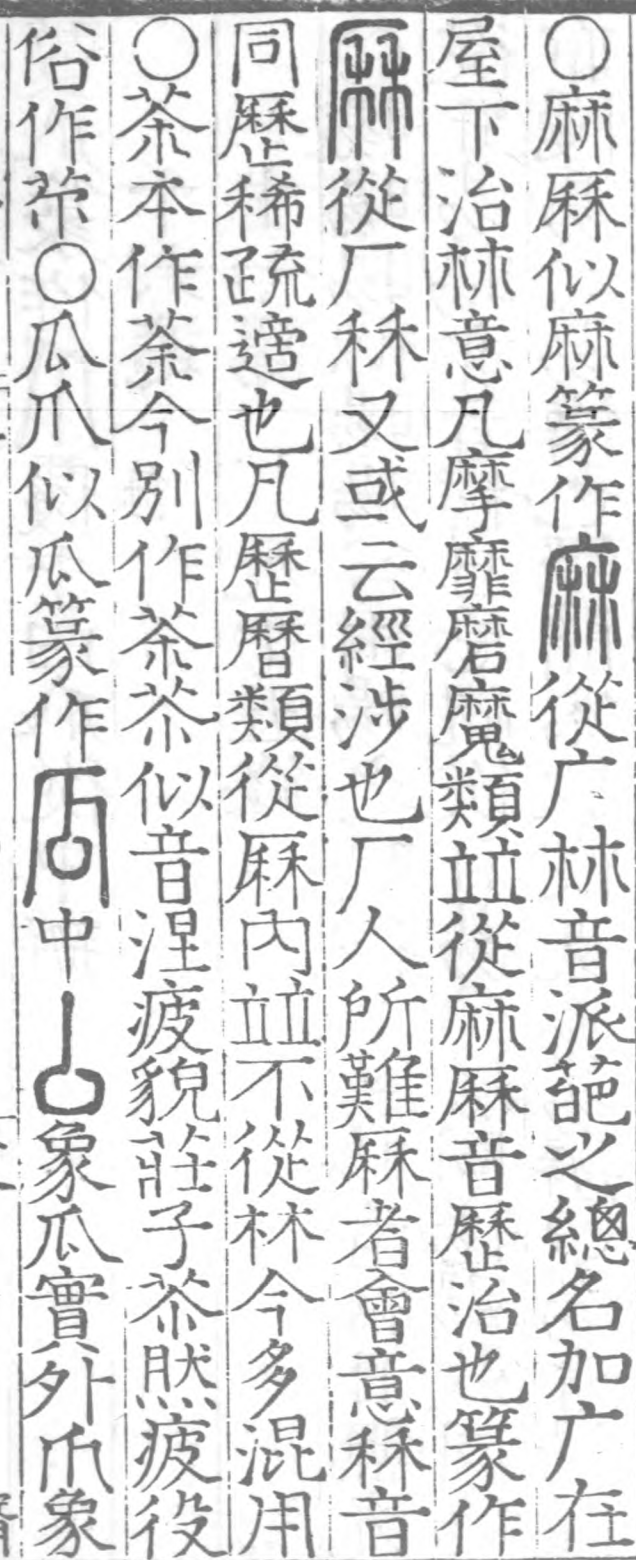 ○麻厤似麻篆作麻從广𣏟音派葩之總名加广在
屋下治𣏟意凡摩靡磨魔類並從麻厤音歷治也篆作
厤從厂秝又或云經涉也厂人所難厤者會意秝音
同歷稀疏適也凡歷曆類從厤內並不從林今多混用
○茶本作荼今別作茶苶似音涅疲貌莊子苶然疲役
俗作苶○瓜爪似瓜篆作中象瓜實外爪象